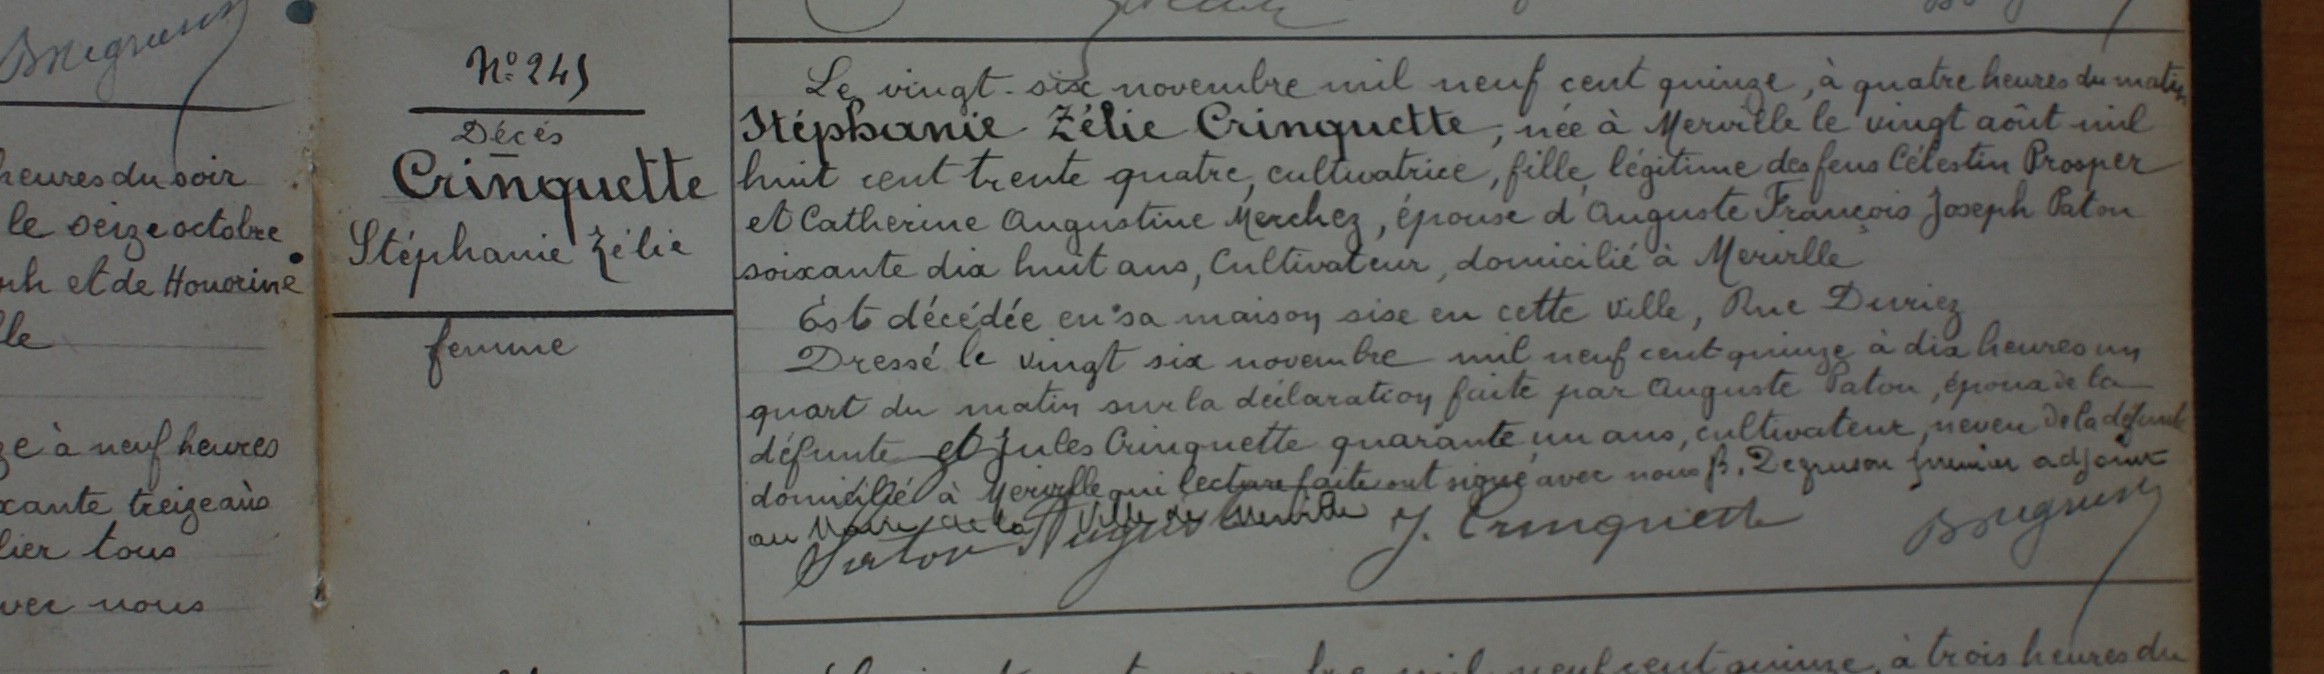 heures du soir
le seize octobre
ph et de Honorine
lle
ze à neuf heures
xante treize ans
lier tous
vec nous
N° 245
Décès
Crinquette
Stéphanie Zélie
femme
Le vingt-six novembre mil neuf cent quinze, à quatre heures du matin
Stéphanie Zélie Crinquette, née à Merville le vingt août mil
huit cent trente quatre, cultivatrice, fille légitime des feus Célestin Prosper
et Catherine Augustine Merchez, épouse d'Auguste François Joseph Patou
soixante dix huit ans, Cultivateur, domicilié à Merville
Est décédée en sa maison sise en cette ville, Rue Duriez
Dressé le vingt six novembre mil neuf cent quinze à dix heures un
quart du matin sur la déclaration faite par Auguste Patou, époux de la
défunte et Jules Crinquette quarante un ans, cultivateur, neveu de la défunte
domicilié à Merville qui lecture faite ont signé avec nous B. Degruson premier adjoint
au Maire de la Ville de Merville
Patou Auguste J. Crinquette
à trois heures du